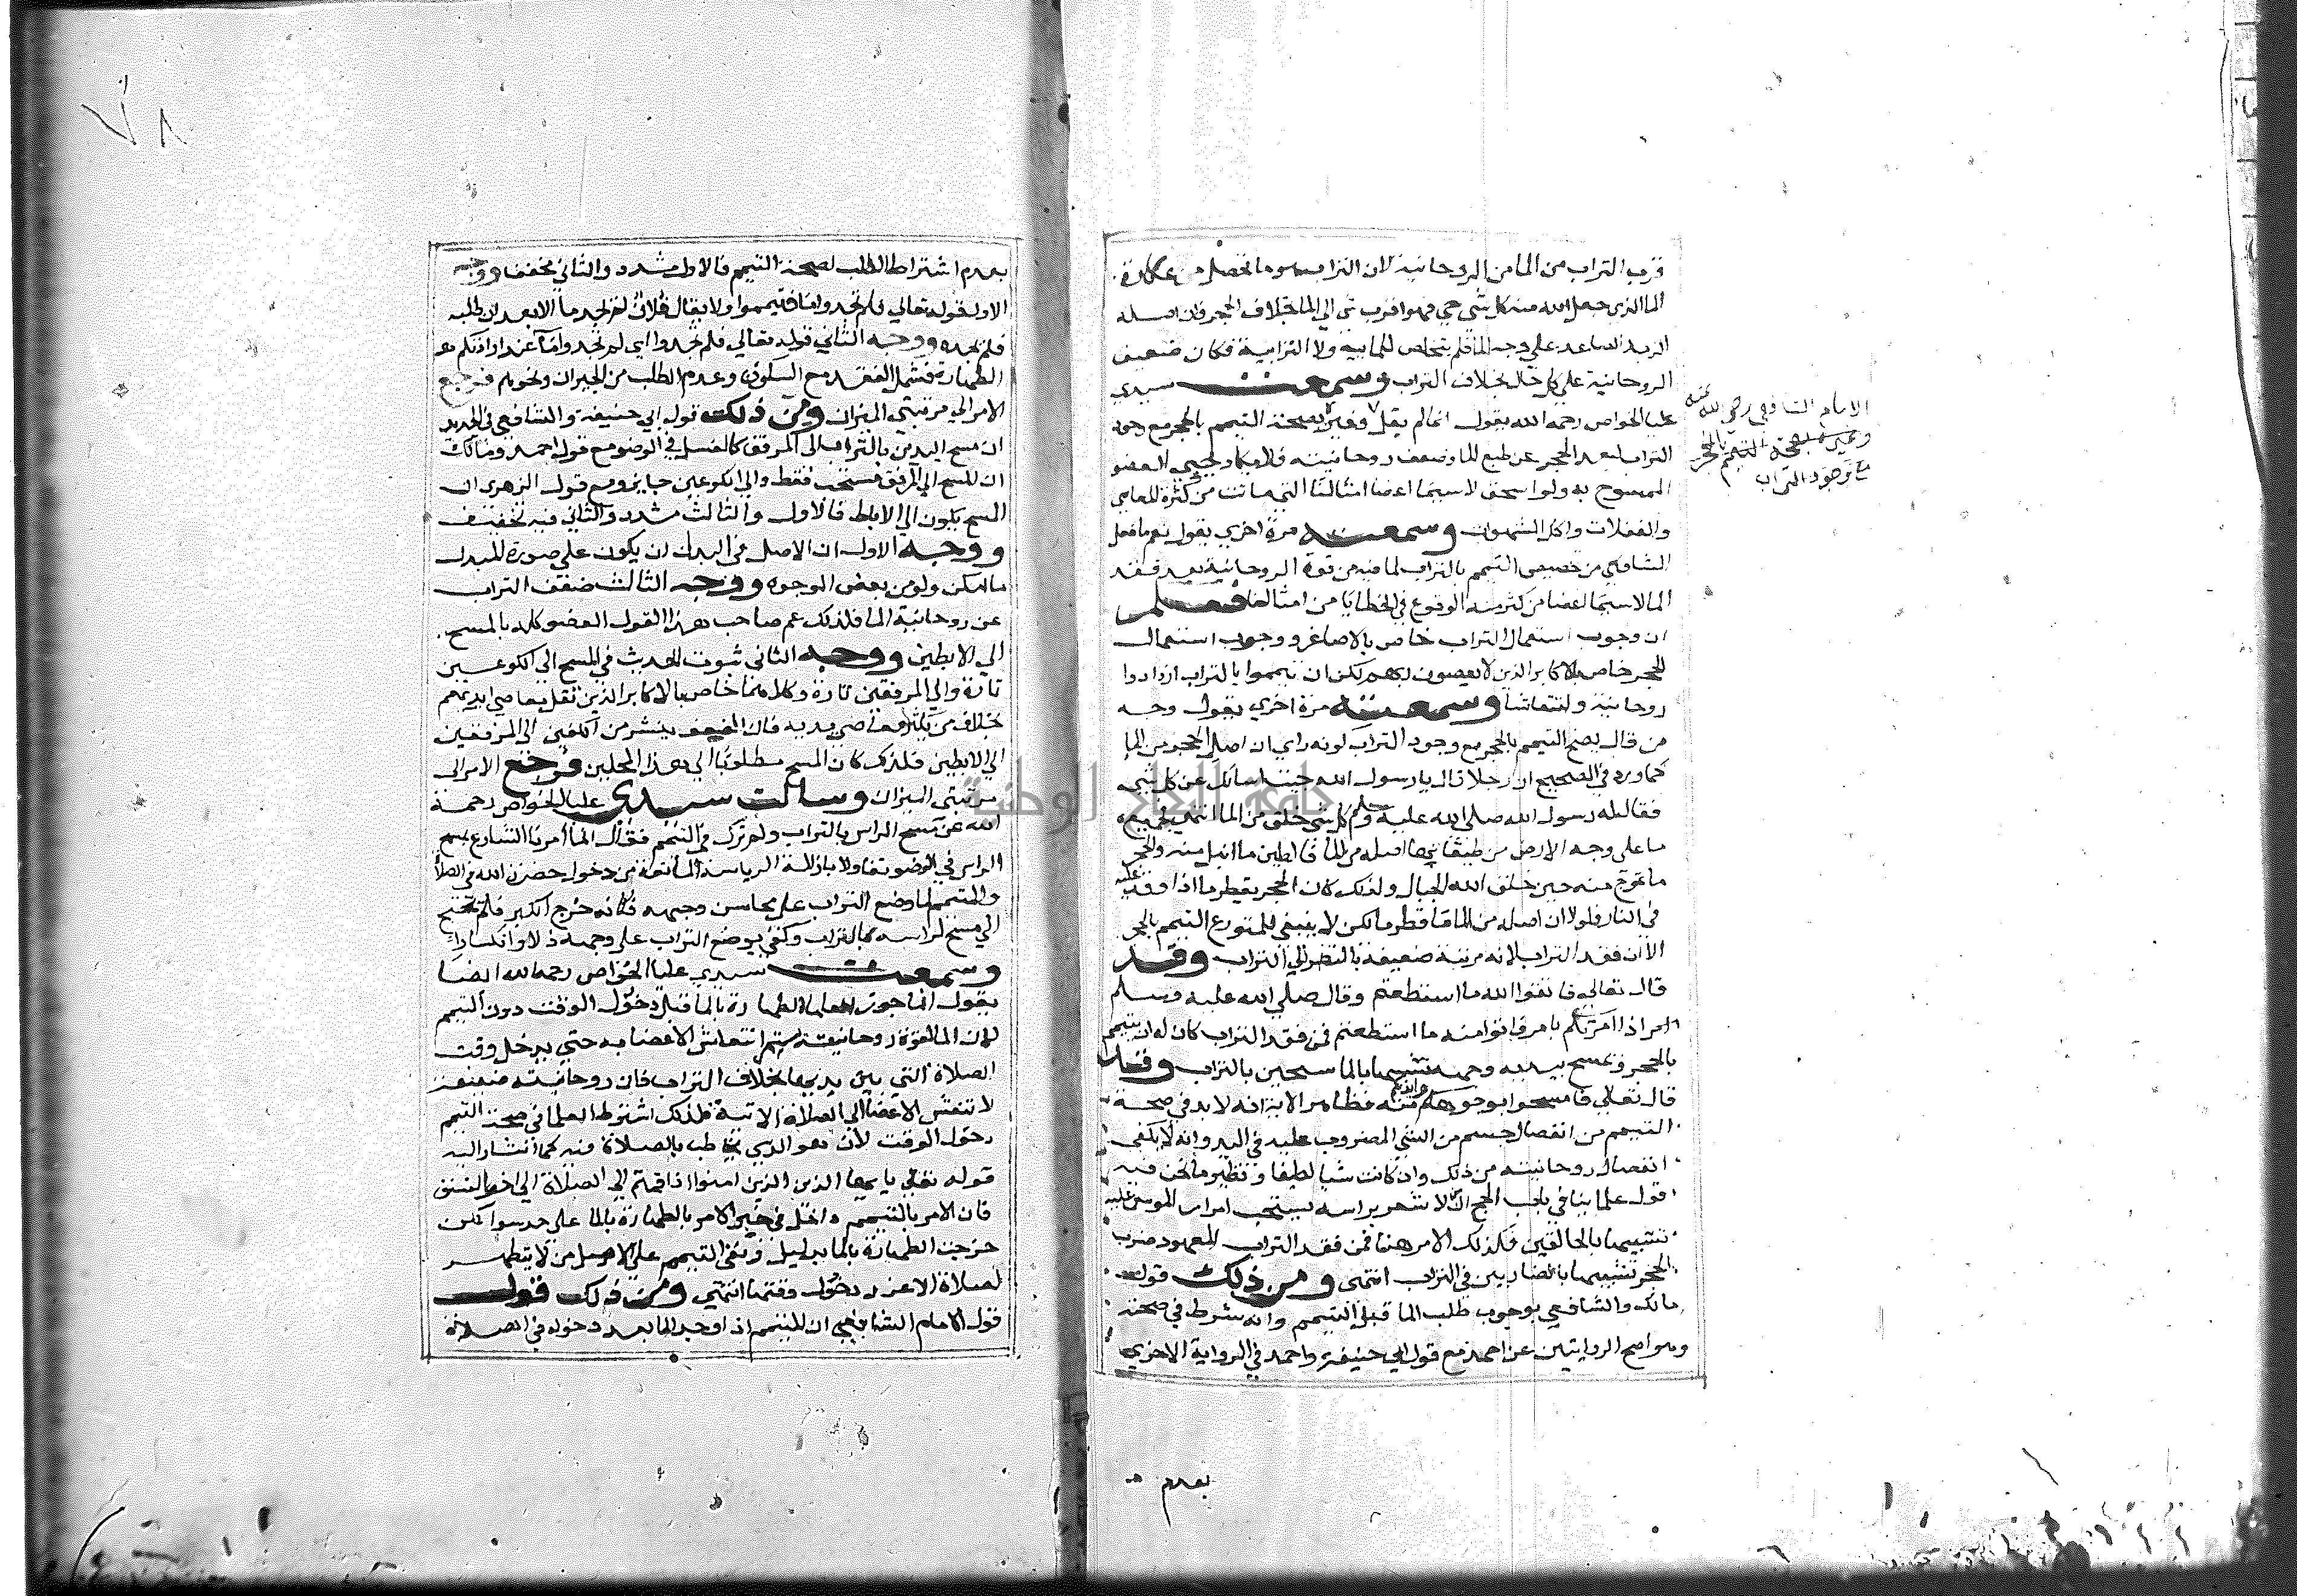 قرب التراب من الما من الروحانية لان التراب هو ما تحصل من عكارة
الما الذي جعل الله منه كل شي حي فهو اقرب شي الي الما بخلاف الحجر فان اصله
الزبد الصاعد علي وجه الما فلم يتخلص للمايية ولا الترابية فكان ضعيف
الروحانية علي كل حال بخلاف التراب وسمعت سيدي
عليا الخواص رحمه الله يقول انما لم يقل وغيره بصحة التيمم بالحجر مع وجود
الامام الشافعي رضي الله عنه
وغيره بصحة التيمم بالحجر
مع وجود التراب
التراب لبعد الحجر عن طبع الما وضعف روحانيته فلا يكاد يحيي العضو
الممسوح به ولو اسحق لا سيما اعضا امثالنا التي ماتت من كثرة المعاصي
والغفلات واكل الشهوات وسمعته مرة اخري يقول نعم ما فعل
الشافعي من تخصيص التيمم بالتراب لما فيه من قوة الروحانية بعد فقد
الما لا سيما اعضا من كثر منه الوقوع في الخطايا من امثالنا فعلم
ان وجوب استعمال التراب خاص بالاصاغر ووجوب استعمال
الحجر خاص بالاكابر الذين لا يعصون ربهم لكن ان تيمموا بالتراب ازدادوا
روحانية وانتعاشا وسمعته مرة اخري يقول وجه
من قال يصح التيمم بالحجر مع وجود التراب كونه راي ان اصل الحجر من الما
كما ورد في الصحيح ان رجلا قال يا رسول الله جيت اسالك عن كل شي
فقال له رسول الله صلي الله عليه وسلم كل شي خلق من الما انتهي فجميع
ما علي وجه الارض من طبقاتها اصله من الما فالطين ما انبل منه والحجر
ما تموج منه حين خلق الله الجبال ولذلك كان الحجر يقطر ما اذا وقد عليه
في النار فلولا ان اصله من الما ما قطر ما لكن لا ينبغي للمتورع التيمم بالحجر
الا ان فقد التراب لانه مرتبة ضعيفة بالنظر الي التراب وقد
قال تعالي فاتقوا الله ما استطعتم وقال صلي الله عليه وسلم
اذا امرتكم بامر فاتوا منه ما استطعتم فمن فقد التراب كان له ان يتيمم
بالحجر ويمسح بيديه وجهه تشبيها بالما سحين بالتراب وقد
قال تعالي فامسحوا بوجوهكم وايديكم منه فظاهر الاية انه لا بد في صحة
التيمم من انفصال جسم من الشي المضروب عليه في اليد وانه لا يكفي
انفصال روحانيته من ذلك وان كانت شيا لطيفا ونظير ما نحن فيه
قول علماينا في باب الحج ان من لا شعر براسه يستحب امرار الموس عليه
تشبيها بالحالقين فكذلك الامر هنا فمن فقد التراب المعهود ضرب
الحجر تشبيها بالضاربين في التراب انتهي ومن ذلك قول
مالك والشافعي بوجوب طلب الما قبل التيمم وانه شرط في صحته
وهو اصح الروايتين عن احمد مع قول ابي حنيفة واحمد في الرواية الاخري
بعدم
٧٨
بعدم اشتراط الطلب لصحة التيمم فالاول مشدد والثاني مخفف ووجه
الاول قوله تعالي فلم تجدوا ما فتيمموا ولا يقال فلان لم يجد ما الا بعد ان طلبه
فلم يجده ووجه الثاني قوله تعالي فلم تجدوا اي لم تجدوا ما عند ارادتكم
الطهارة فشمل الفقد مع السكوت وعدم الطلب من الجيران ونحوهم فرجع
الامر الي مرتبتي الميزان ومن ذلك قول ابي حنيفة والشافعي في الجديد
ان مسح اليدين بالتراب الي المرفق كالغسل في الوضو مع قول احمد ومالك
ان المسح الي المرفق مستحب فقط والي الكوعين جايز ومع قول الزهري ان
المسح يكون الي الاباط فالاول والثالث مشدد والثاني فيه تخفيف
ووجه الاول ان الاصل في البدل ان يكون علي صورة المبدل
ما امكن ولو من بعض الوجوه ووجه الثالث ضعف التراب
عن روحانية الما فلذلك عم صاحب هذا القول العضو كله بالمسح
الي الابطين ووجه الثاني ثبوت الحديث في المسح الي الكوعين
تارة والي المرفقين تارة وكل منهما خاص بالاكابر الذين تقل معاصي ايديهم
بخلاف من يكثر معاصي يديه فان الضعف ينتشر من الكفين الي المرفقين
الي الابطين فلذلك كان المسح مطلوبا الي هذا المحلين فرجع الامر الي
مرتبتي الميزان وسالت سيدي عليا الخواص رحمة
الله عن مسح الراس بالتراب ولم ترك في التيمم فقال انما امرنا الشارع بمسح
الراس في الوضو تفاولا بازالة الرياسة المانعة من دخول حضرة الله في الصلاة
والمتيمم لما وضع التراب علي محاسن وجهه فكانه خرج الكبر فلم يحتج
الي مسح راسه بالتراب وكفي بوضع التراب علي وجهه ذلا وانكسارا
وسمعت سيدي عليا الخواص رحمه الله ايضا
يقول انما جوز العلما الطهارة بالما قبل دخول الوقت دون التيمم
لان الما لقوة روحانيته يستمر انتعاش الاعضا به حتي يدخل وقت
الصلاة التي بين يديها بخلاف التراب فان روحانيته ضعيفة
لا تنعش الاعضا الي الصلاة الاتية فلذلك اشترط العلما في صحة التيمم
دخول الوقت لانه هو الذي يخاطب بالصلاة فيه كما اشار اليه
قوله تعالي يا ايها الذين الذين امنوا اذا قمتم الي الصلاة الي اخر النسق
فان الامر بالتيمم داخل في حيز الامر بالطهارة بالما علي حد سوا لكن
خرجت الطهارة بالما بدليل وبقي التيمم علي الاصل من لا يتطهر
لصلاة الا عند دخول وقتها انتهي ومن ذلك قول
قول الامام الشافعي ان المتيمم اذا وجد الما بعد دخوله في الصلاة
جامعة النجاح الوطنية